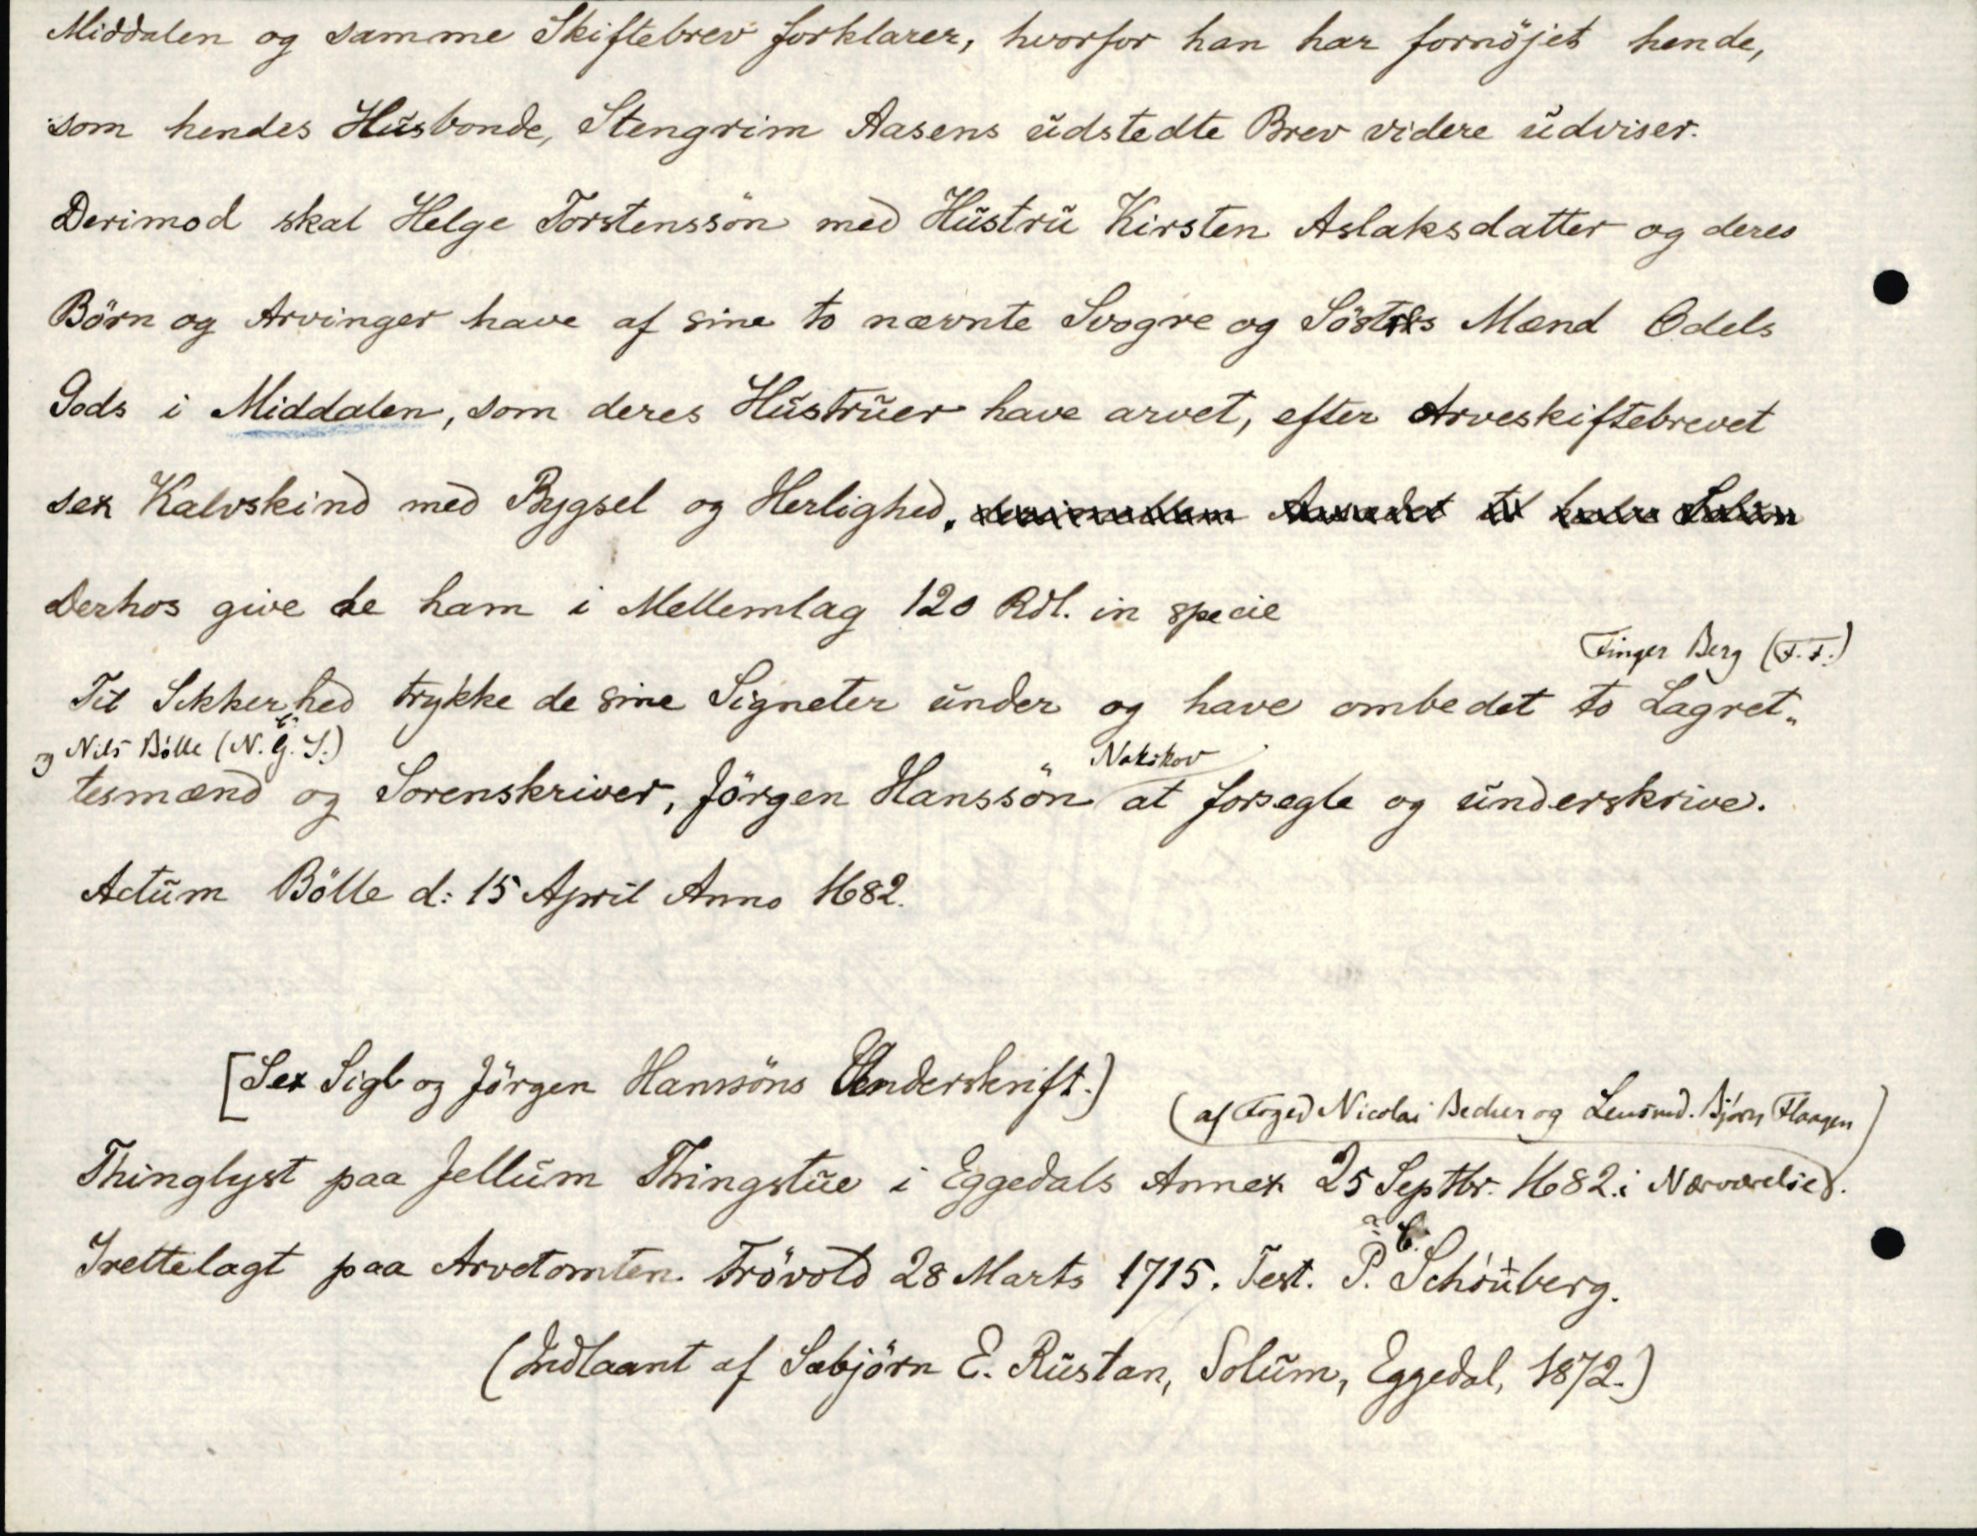 Middalen og samme Skiftebrev forklarer, hvorfor han har fornöjet hende,
som hendes Husbonde, Stengrim Aasens udstedte Brev videre udviser.
Derimod skal Helge Torstenssön med Hustru Kirsten Aslaksdatter og deres
Börn og Arvinger have af sine to nævnte Svogre og Sösters Mænd Odels
Gods i Middalen, som deres Hustruer have arvet, efter Arveskiftebrevet
sex Kalvskind med Bygsel og Herlighed.
Derhos give de ham i Mellemlag 120 Rdl. in specie
Finger Berg (F. F.)
Til Sikkerhed trykke de sine Signeter under og have ombedet to Lagret„
og Nils Bölle (N. G. S.)
Nakskov
tesmænd og Sorenskriver, Jörgen Hanssön at forsegle og underskrive.
Actum Bölle d: 15 April Anno 1682.
[Sex Sigl og Jörgen Hanssöns Underskrift.)
(af Foged Nicolai Becher og Lensmd. Björn Flaagen)
Thinglyst paa Jellum Thingstue i Eggedals Annex 25 Septbr. 1682 i Nærværelse.
Irettelagt paa Arvetomten Trövold 28 Marts 1715. Test. P. C. Schöuberg.
(Indlaant af Sæbjörn E. Rustan, Solum, Eggedal, 1872.)